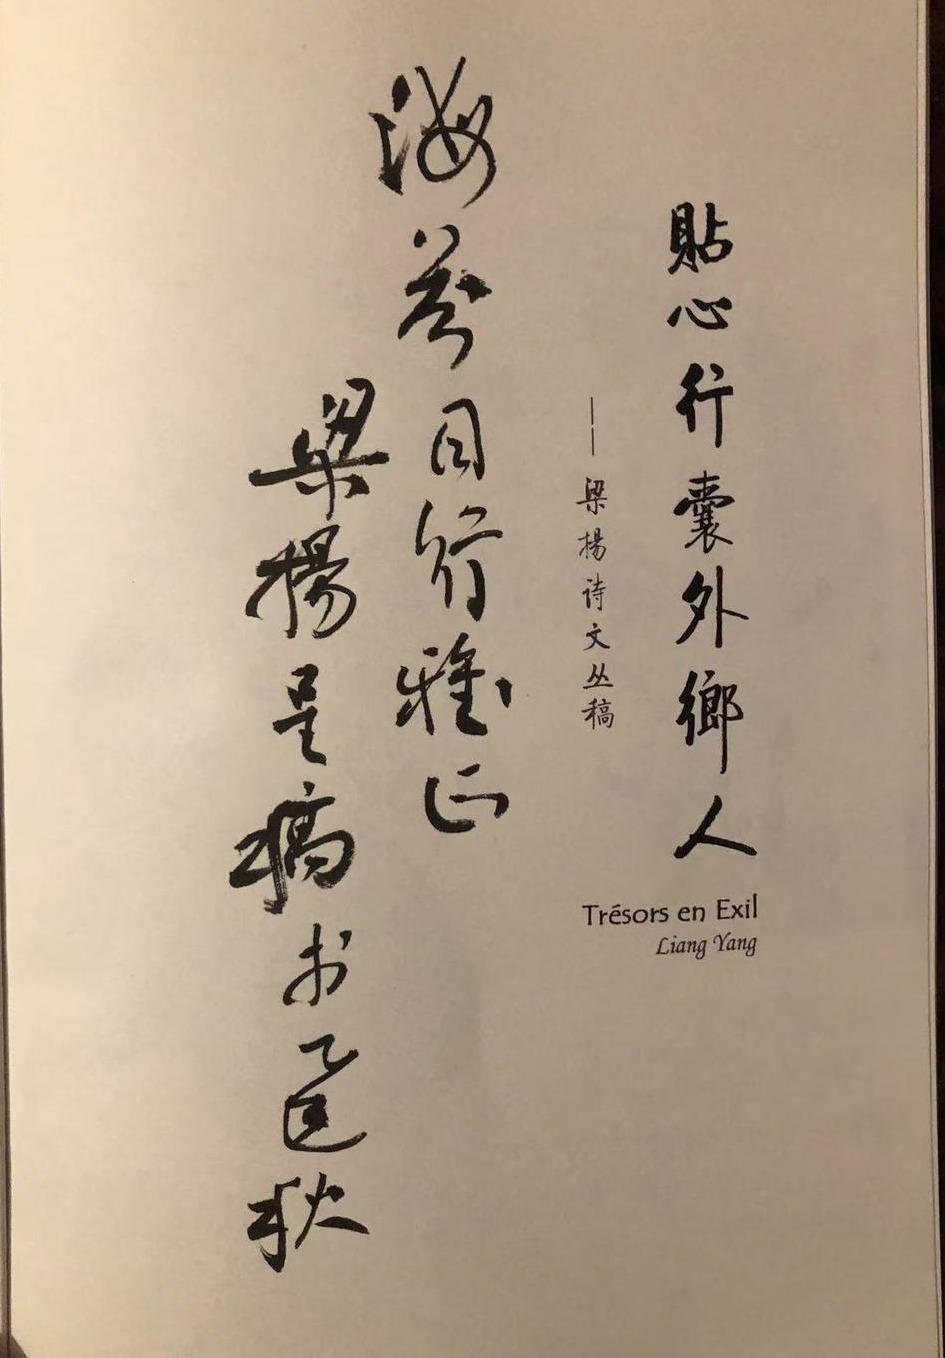 貼心行囊外鄉人
——梁揚诗文丛稿
Trésors en Exil
Liang Yang
海芬同行雅正
梁揚呈稿乙巳秋